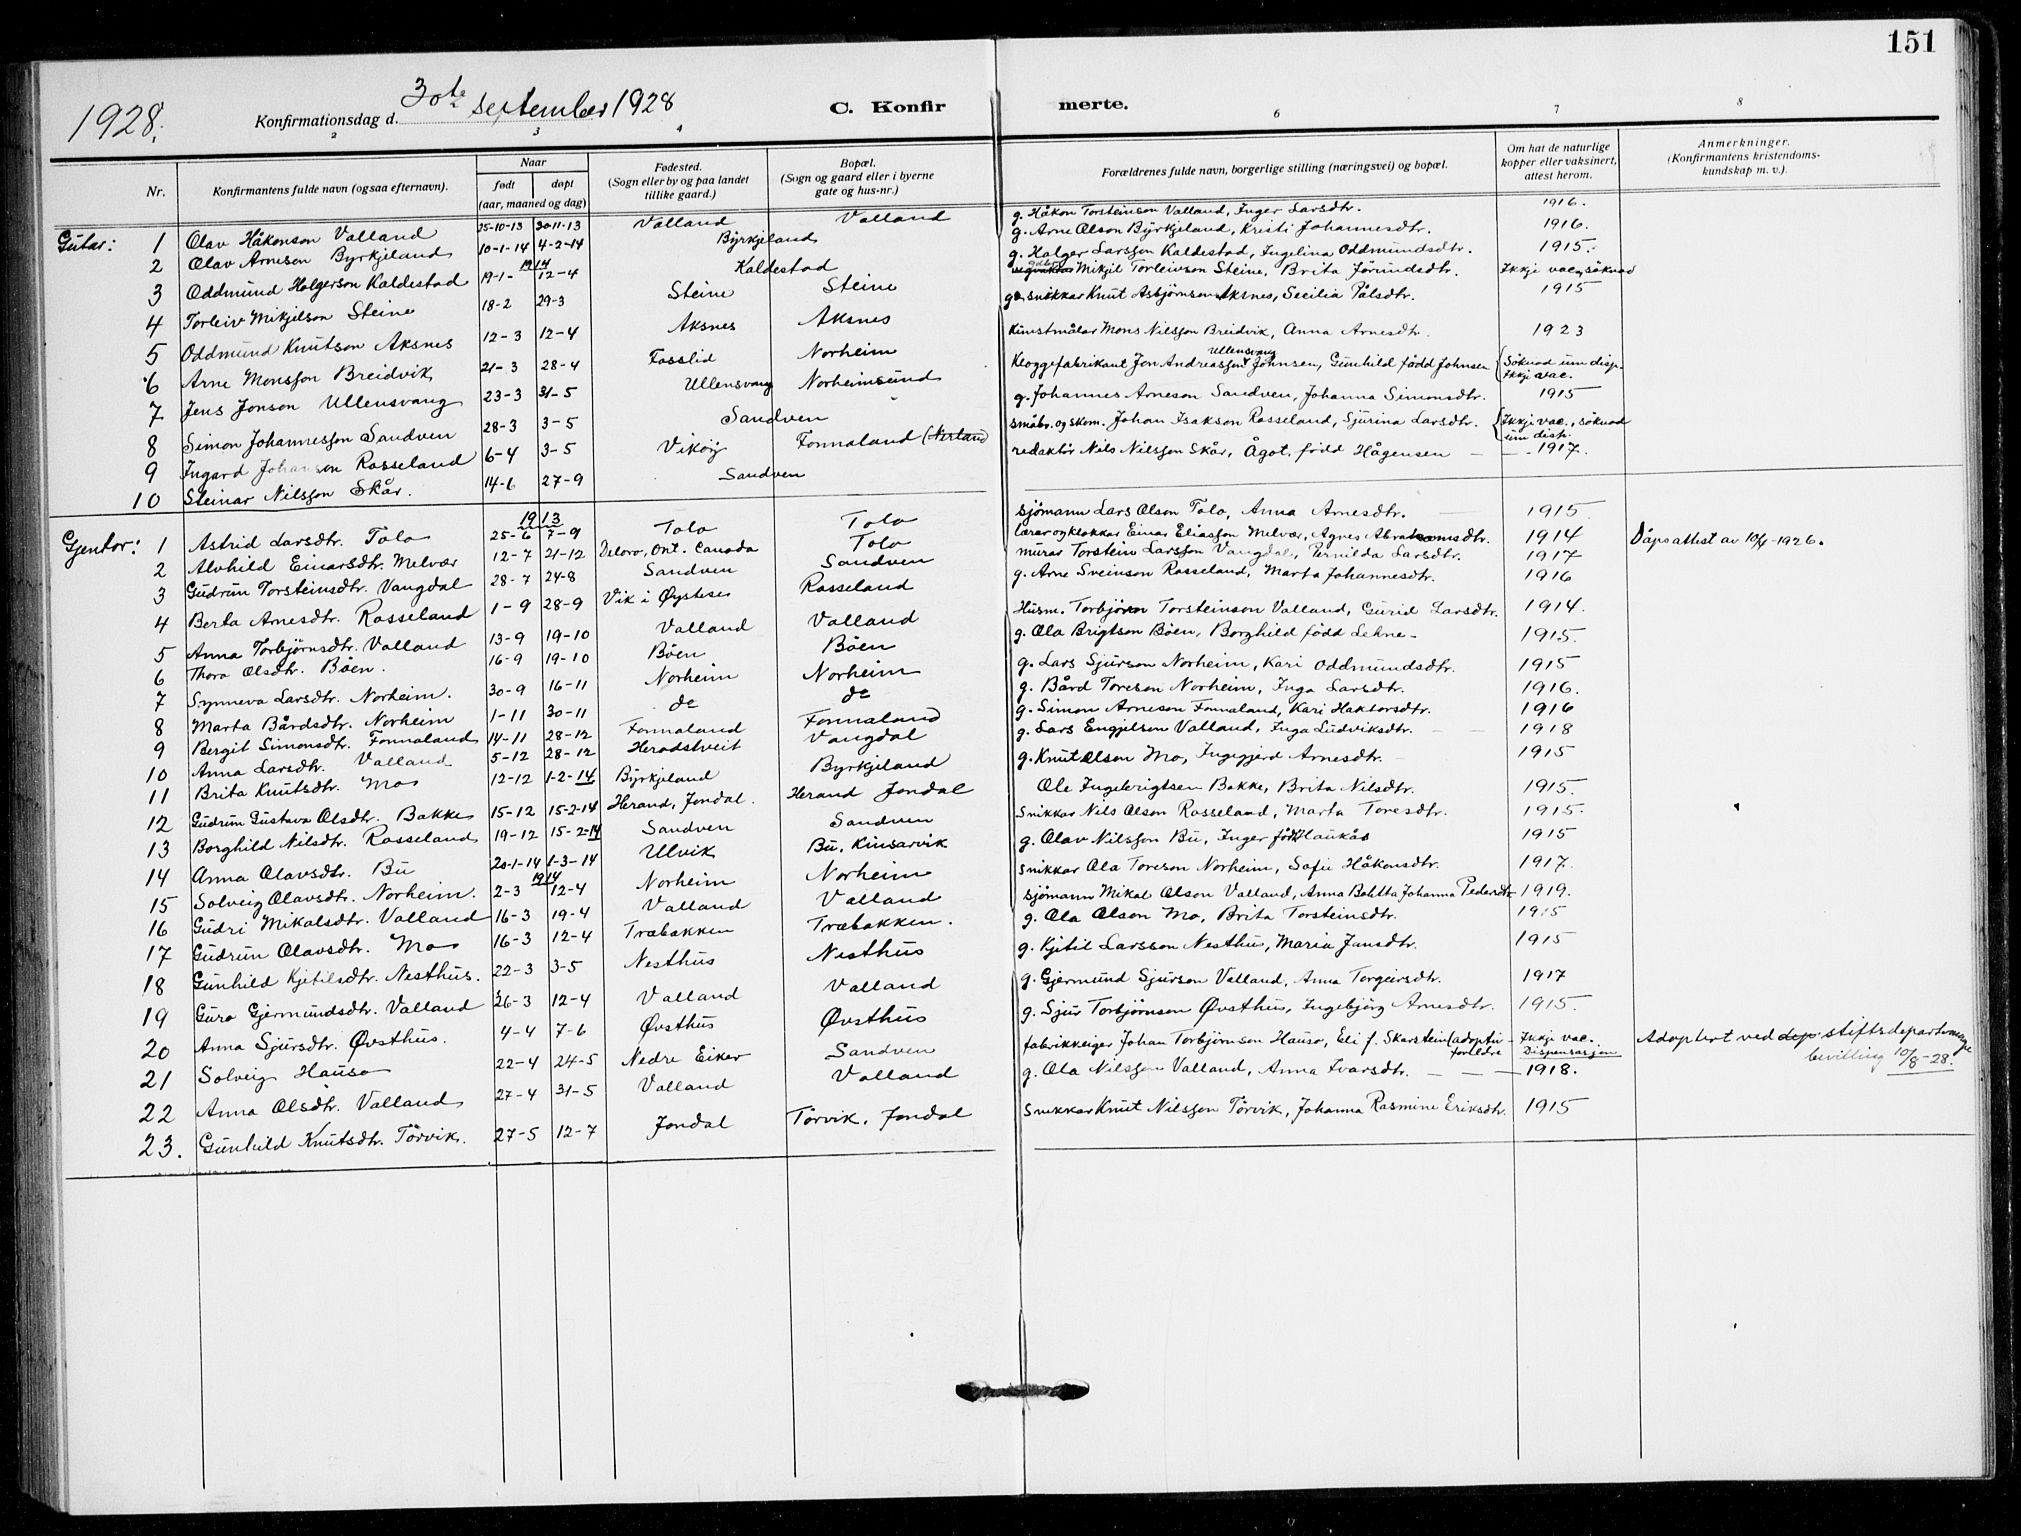 151
1928.
Konfirmationsdag d. 30te september 1928
C. Konfirmerte.
2 3 4 6 7 8
Nr.
Konfirmantens fulde navn (ogsaa efternavn).
Naar
født døpt
(aar, maaned og dag)
Fødested.
(Sogn eller by og paa landet
tillike gaard.)
Bopæl.
(Sogn og gaard eller i byerne
gate og hus-nr.)
Forældrenes fulde navn, borgerlige stilling (næringsvei) og bopæl.
Om hat de naturlige
kopper eller vaksinert,
attest herom.
Anmerkninger.
(Konfirmantens kristendoms-
kundskap m. v.).
Gutar: 1 Olav Håkonson Valland 25-10-13 30-11-13 Valland Valland g. Håkon Torsteinson Valland, Inger Larsdtr. 1916.
2 Olav Arneson Byrkjeland 10-1-14 4-2-14 Byrkjeland g. Arne Olson Byrkjeland, Kristi Johannesdtr. 1916.
1914
3 Oddmund Holgerson Kaldestad 19-1- 12-4 Kaldestad g. Holger Larsson Kaldestad, Ingelina Oddmundsdtr. 1915.
4 Torleiv Mikjelson Steine 18-2 29-3 Steine Steine Mikjel Torleivson Steine, Brita Jörundsdtr. Ikkje vac, söknad
5 Oddmund Knutson Aksnes 12-3 12-4 Aksnes Aksnes snikkar Knut Asbjørnson Aksnes, Secilia Pålsdtr. 1915
6 Arne Monsson Breidvik 21-3 28-4 Fosslid Norheim Kunstmålar Mons Nilsson Breidvik, Anna Arnesdtr. 1923
7 Jens Jonson Ullensvang 23-3 31-5 Ullensvang Norheimsund Kloggefabrikant Jon Andreasson Ullensvang Johnsen, Gunhild född Johnsen {Söknad um disp. Ikkje vac.
8 Simon Johannesson Sandven 28-3 3-5 Sandven g. Johannes Arneson Sandven, Johanna Simonsdtr. 1915
9 Ingard Johanson Rosseland 6-4 3-5 Vikøy Fonnaland (Nerland) småbr. og skom. Johan Isakson Rosseland, Sjurina Larsdtr. {Ikkje vac., söknad um disp.
10 Steinar Nilsson Skår. 14-6 27-9 Sandven redaktör Nils Nilsson Skår, Ågot, född Hågensen — — 1917.
1913
Gjentor: 1 Astrid Larsdtr. Tolo 25-6 7-9 Tolo Tolo sjömann Lars Olson Tolo, Anna Arnesdtr. — 1915.
2 Alvhild Einarsdtr. Melvær 12-7 21-12 Deloro, Ont. Canada Tolo lærar og klokkar Einar Eliasson Melvær, Agnes Abrahamsdtr. 1914 Dåpsattest av 10/4-1926.
3 Gudrun Torsteinsdtr. Vangdal 28-7 24-8 Sandven Sandven murar Torstein Larsson Vangdal, Pernilda Larsdtr. 1917
4 Berta Arnesdtr. Rosseland 1-9 28-9 Vik i Øystese Rosseland g. Arne Sveinson Rosseland, Marta Johannesdtr. 1916
5 Anna Torbjørnsdtr. Valland 13-9 19-10 Valland Valland Husm. Torbjørn Torsteinson Valland, Gurid Larsdtr. 1914.
6 Thora Olsdtr. Bøen. 16-9 19-10 Bøen Bøen g. Ola Brigtson Bøen, Borghild född Lekne - 1915.
7 Synneva Larsdtr. Norheim. 30-9 16-11 Norheim Norheim g. Lars Sjurson Norheim, Kari Oddmundsdtr. 1915
8 Marta Bårdsdtr. Norheim 1-11 30-11 do do g. Bård Toreson Norheim, Inga Larsdtr. 1916.
9 Bergit Simonsdtr. Fonnaland 14-11 28-12 Fonnaland Fonnaland g. Simon Arneson Fonnaland, Kari Haktorsdtr. 1916
10 Anna Larsdtr. Valland 5-12 28-12 Herodstveit Vangdal g. Lars Engjelson Valland, Inga Ludviksdtr. — — 1918
11 Brita Knutsdtr. Mo 12-12 1-2-14 Byrkjeland Byrkjeland g. Knut Olson Mo, Ingegjerd Arnesdtr. - 1915
12 Gudrun Gustava Olsdtr. Bakke 15-12 15-2-14 Herand, Jondal. Herand Jondal Ole Ingebrigtsen Bakke, Brita Nilsdtr. 1915.
13 Borghild Nilsdtr. Rosseland 19-12 15-2-14 Sandven Sandven Snikkar Nils Olson Rosseland, Marta Toresdtr. 1915.
14 Anna Olavsdtr. Bu 20-1-14 1-3-14 Ulvik Bu, Kinsarvik g. Olav Nilsson Bu, Inger född Haukås 1915
1914
15 Solveig Olavsdtr. Norheim. 2-3 12-4 Norheim Norheim snikkar Ola Toreson Norheim, Sofie Håkonsdtr. 1917.
16 Gudri Mikalsdtr. Valland 16-3 19-4 Valland Valland sjömann Mikal Olson Valland, Anna Boletta Johanna Pedersdtr 1919.
17 Gudrun Olavsdtr. Mo 16-3 12-4 Træbakken Træbakken. g. Ola Olson Mo, Brita Torsteinsdtr. 1915
18 Gunhild Kjetilsdtr. Nesthus. 22-3 3-5 Nesthus Nesthus g. Kjetil Larsson Nesthus, Maria Jansdtr. 1915
19 Guro Gjermundsdtr. Valland 26-3 12-4 Valland Valland g. Gjermund Sjurson Valland, Anna Torgeirsdtr. 1917
20 Anna Sjursdtr. Øvsthus. 4-4 7-6 Øvsthus Øvsthus g. Sjur Torbjørnson Øvsthus, Ingebjörg Arnesdtr. 1915.
21 Solveig Hauso 22-4 24-5 Nedre Eiker Sandven fabrikkeiger Johan Torbjørnson Hauso, Eli f. Skarstein (adoptivforeldre Ikkje vac. Dispensasjon Adoptert ved dep stiftsdepartementets bevilling 10/8-28.
22 Anna Olsdtr. Valland 27-4 31-5 Valland Valland g. Ola Nilsson Valland, Anna Ivarsdtr. — — 1918.
23. Gunhild Knutsdtr. Törvik. 27-5 12-7 Jondal Törvik, Jondal Snikkar Knut Nilsson Törvik, Johanna Rasmine Eriksdtr. 1915